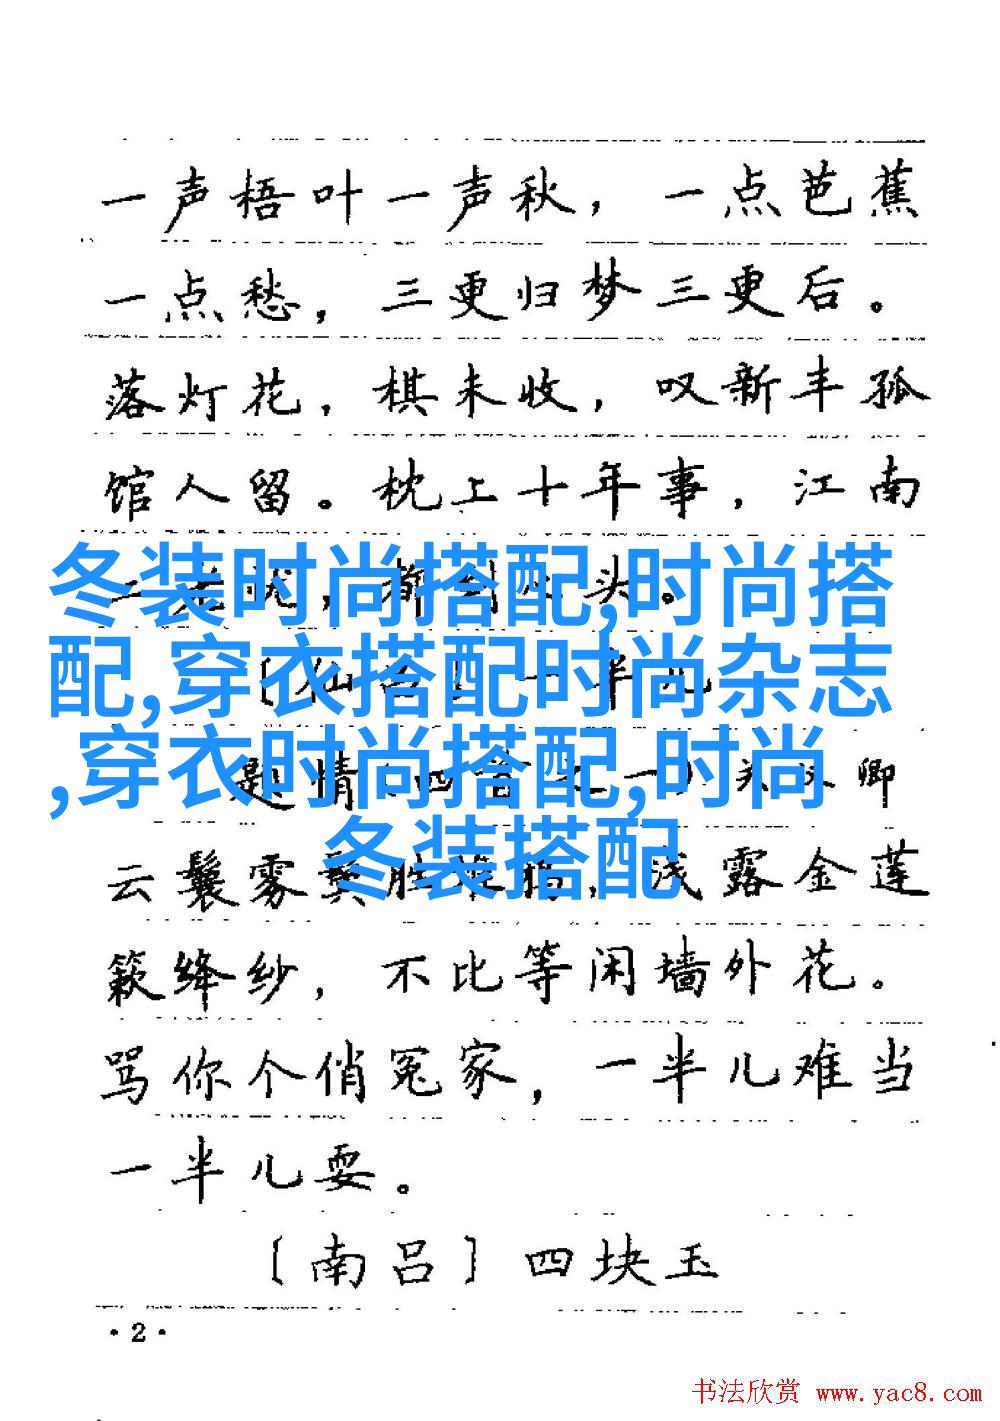 一声梧叶一声秋，一点芭蕉
一点愁，三更归梦三更后。
落灯花，棋未收，叹新丰孤
馆人留。枕上十年事，江南
二老忧，都到心头。
冬装时尚搭配,时尚搭
配,穿衣搭配时尚杂志
,穿衣时尚搭配,时尚
冬装搭配
〔仙吕〕一半儿
题情（四首之一）关汉卿
云鬟雾鬓胜堆鸦，浅露金莲
簌绛纱，不比等闲墙外花。
骂你个俏冤家，一半儿难当
一半儿耍。
〔南吕〕四块玉
·2·
书法欣赏 www.yac8.com